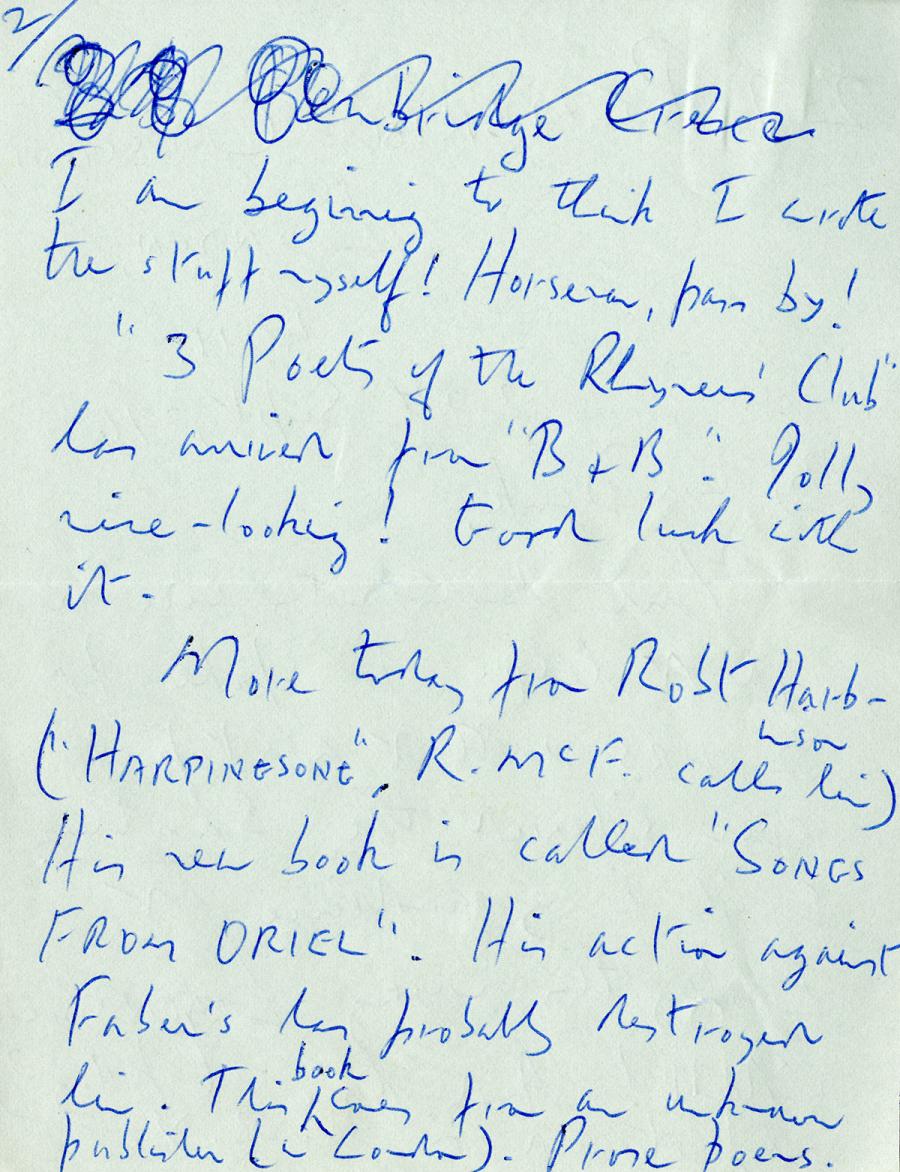 2/
Pembridge Cresce
I am begining to think I wrote
the stuff myself! Horseman, pass by!
"3 Poets of the Rhymers' Club"
has arrived from "B & B". Jolly
nice-looking! Good luck with
it.
More today from Robt Harb-
inson
("HARPINESONE", R. McF. calls him)
His new book is called "SONGS
FROM ORIEL". His action against
Faber's has probably destroyed
him. This book comes from an unknown
publisher (in London). Prose poems.